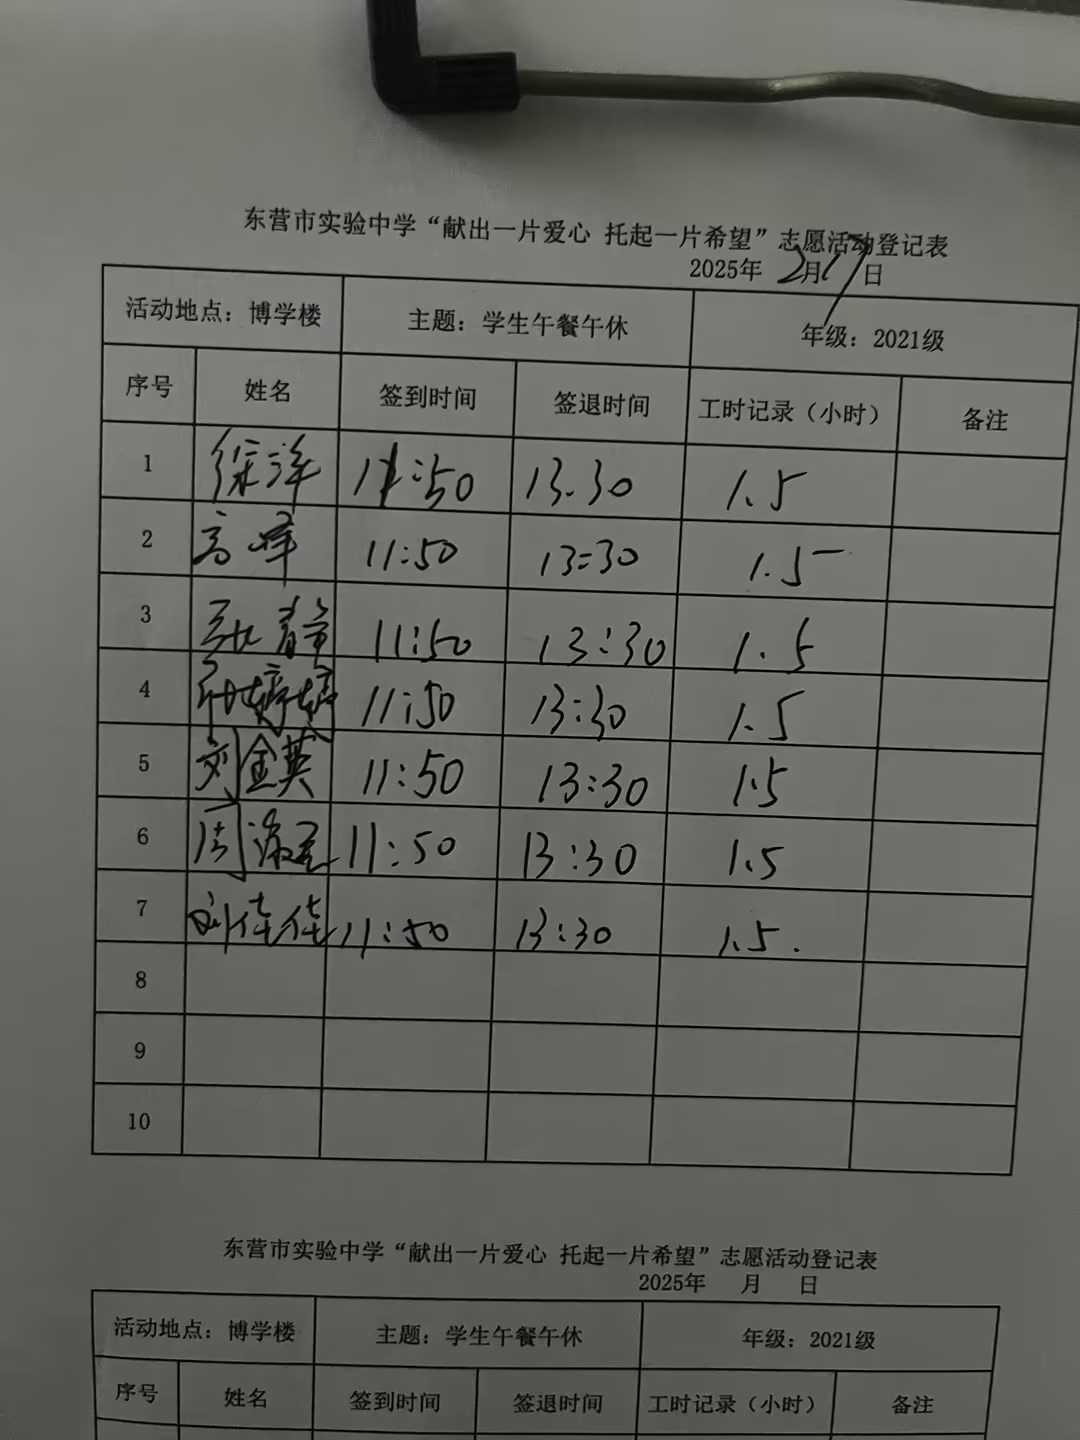 东营市实验中学“献出一片爱心 托起一片希望”志愿活动登记表
2025年 2月17日
活动地点：博学楼 主题：学生午餐午休 年级：2021级
序号 姓名 签到时间 签退时间 工时记录（小时） 备注
1 徐洋 11:50 13.30 1.5
2 高峰 11:50 13:30 1.5
3 11:50 13:30 1.5
4 婷婷 11:50 13:30 1.5
5 刘金英 11:50 13:30 1.5
6 周 11:50 13:30 1.5
7 刘佳佳 11:50 13:30 1.5.
8
9
10
东营市实验中学“献出一片爱心 托起一片希望”志愿活动登记表
2025年 月 日
活动地点：博学楼 主题：学生午餐午休 年级：2021级
序号 姓名 签到时间 签退时间 工时记录（小时） 备注